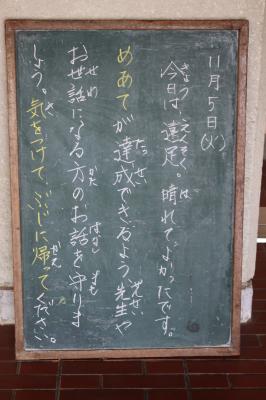 11月5日(火)
今日は遠足。晴れてよかったです。
めあてが達成できるよう先生や
お世話になる方のお話を守りま
しょう。気をつけて、ぶじに帰ってください。